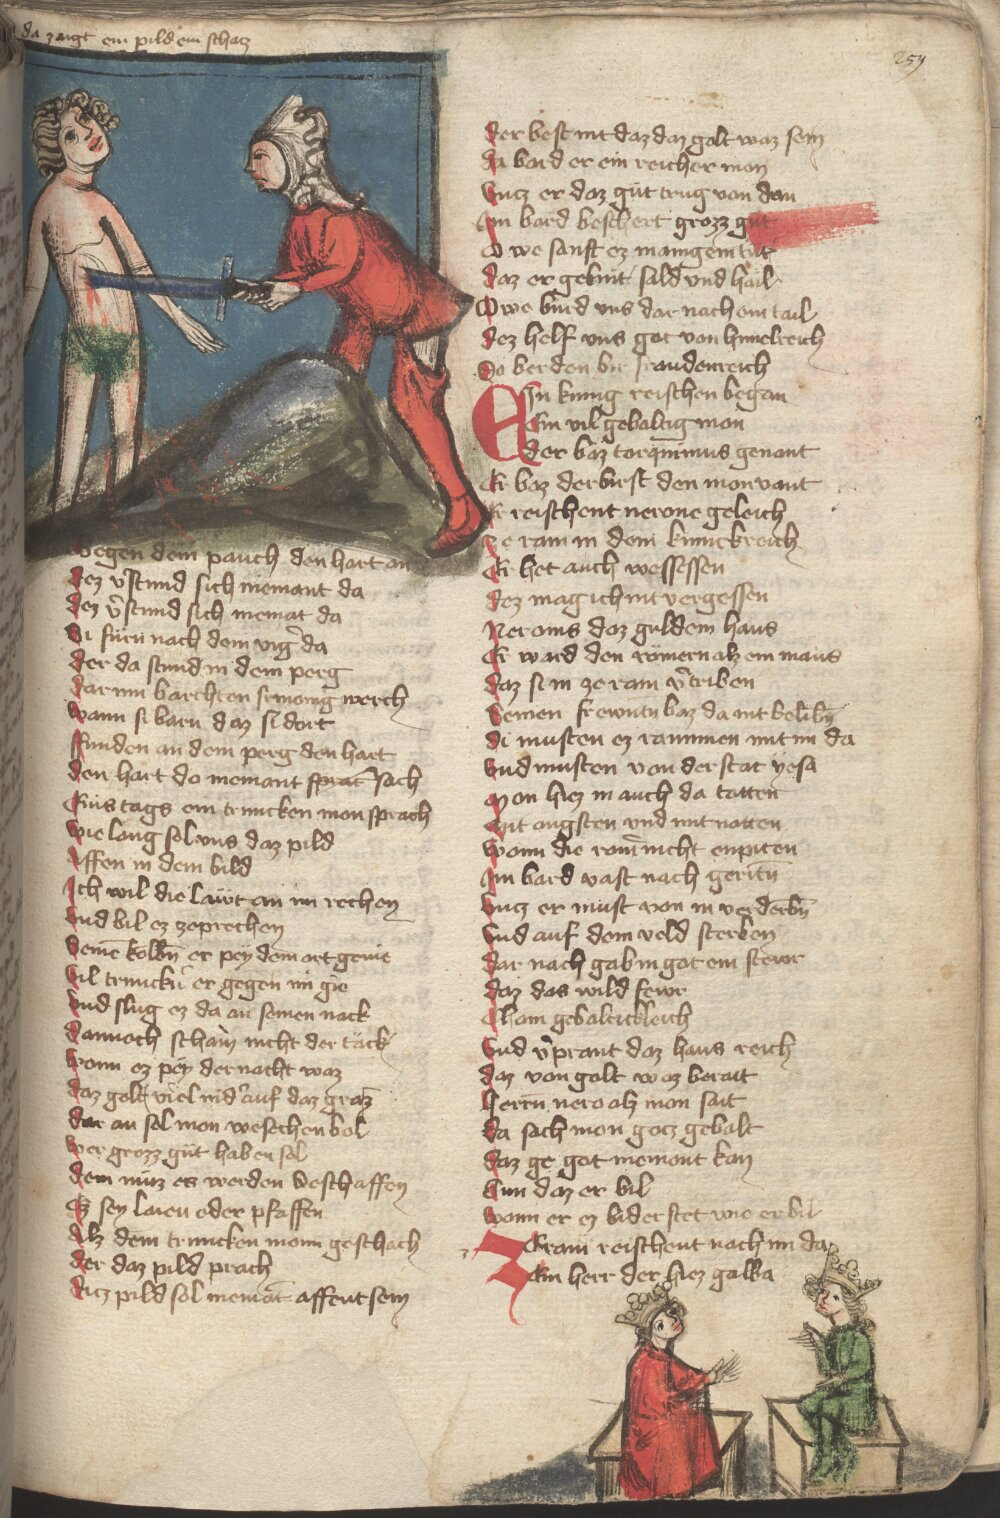 da zaigt ein pild ein schatz
259
gegen dem pauch den hart an
dez v̾stund sich niemant da
dez v̾stund sich niemāt da
Si fürn nach dem ving̾ da
der da stund in dem perg
dar inn barchten si mänig werch
wann si barn daz si dort
ffunden an dem perg den hart
den hart do niemant sprac sach
Ains tags ein trunken man sprach
wie lang sol vns daz pild
Affen in dem bild
Ich wil die läwt an im rechen
vnd bil ez zeprechen
Seinē kolbn̄ er pey dem ort gevie
vil trunckn̄ er gegen im gie
vnd slug ez da an seinen nack
dannoch scham nicht der täck
wann ez pey der nacht waz
daz golt viel nid̾ auf daz graz
dar an sol man weschen bol
wer grozz gut haben sol
dem müz es werden beschaffen
Ez sey laien oder pfaffen
Alz dem truncken mann geschach
der daz pild prach
ditz pild sol niemāt affent sein
der best nit daz daz golt waz sein
da bard er ein reicher man
vntz er daz güt trug von dan
Im bard beschert grozz gut
O we sanft ez manigem tüt
daz er gebint säld vnd hail
O we bürd vns dar nach ein tail
dez helf vns got von himelreich
So berden bir fraudenreich
Ein künig reischen began
Ein vil gebaltig man
der baz torquinius genant
Er baz der birst den man vant
Er reischent nerone geleich
ze ram in dem kunickreich
Er het auch wessessen
dez mag ich nit vergessen
Neronis daz guldein haus
Er ward den römern alz ein maus
daz si in ze ram v̾triben
Seinen frewntn̄ baz da nit belibn̄
di musten ez raummen mit im da
vnd musten von der stat yesa
Man hiez in auch da tötten
Mit angsten vnd mit nötten
wann die röm̄ nicht enpiten
Im bard vast nach geritn̄
vntz er must von in verderbn̄
vnd auf dem veld sterben
dar nach gab in got ein stewr
daz das wild fewr
Cham gebalticleich
vnd v̾prant daz haus reich
daz von golt waz berait
Herrn nero alz man sait
da sach man gotz gebalt
daz ge got niemant kan
Tun daz er bil
wann er ez biderstet wie er bil
Ze ram reischent nach im da
Ein herr der hiez galba